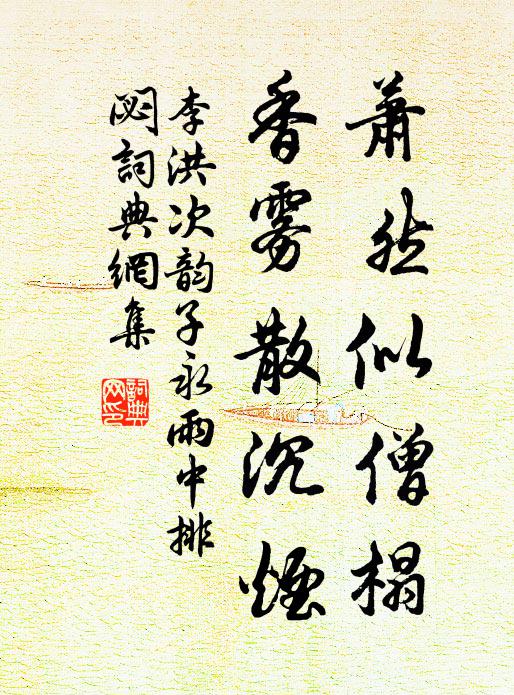 蕭然似僧榻
香雾散沉煙
李洪次韵子永雨中排
闷詞典網集
詞典网印